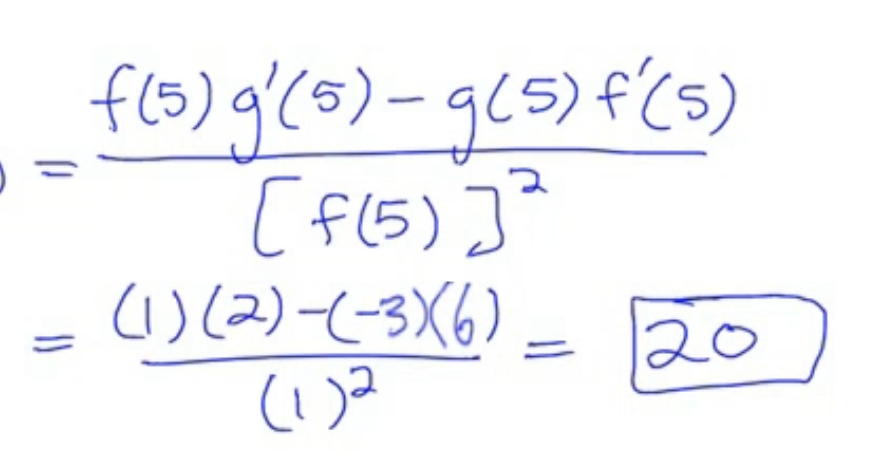 ) = \frac{f(5) g'(5) - g(5) f'(5)}{[f(5)]^2}
= \frac{(1)(2)-(-3)(6)}{(1)^2} = 20